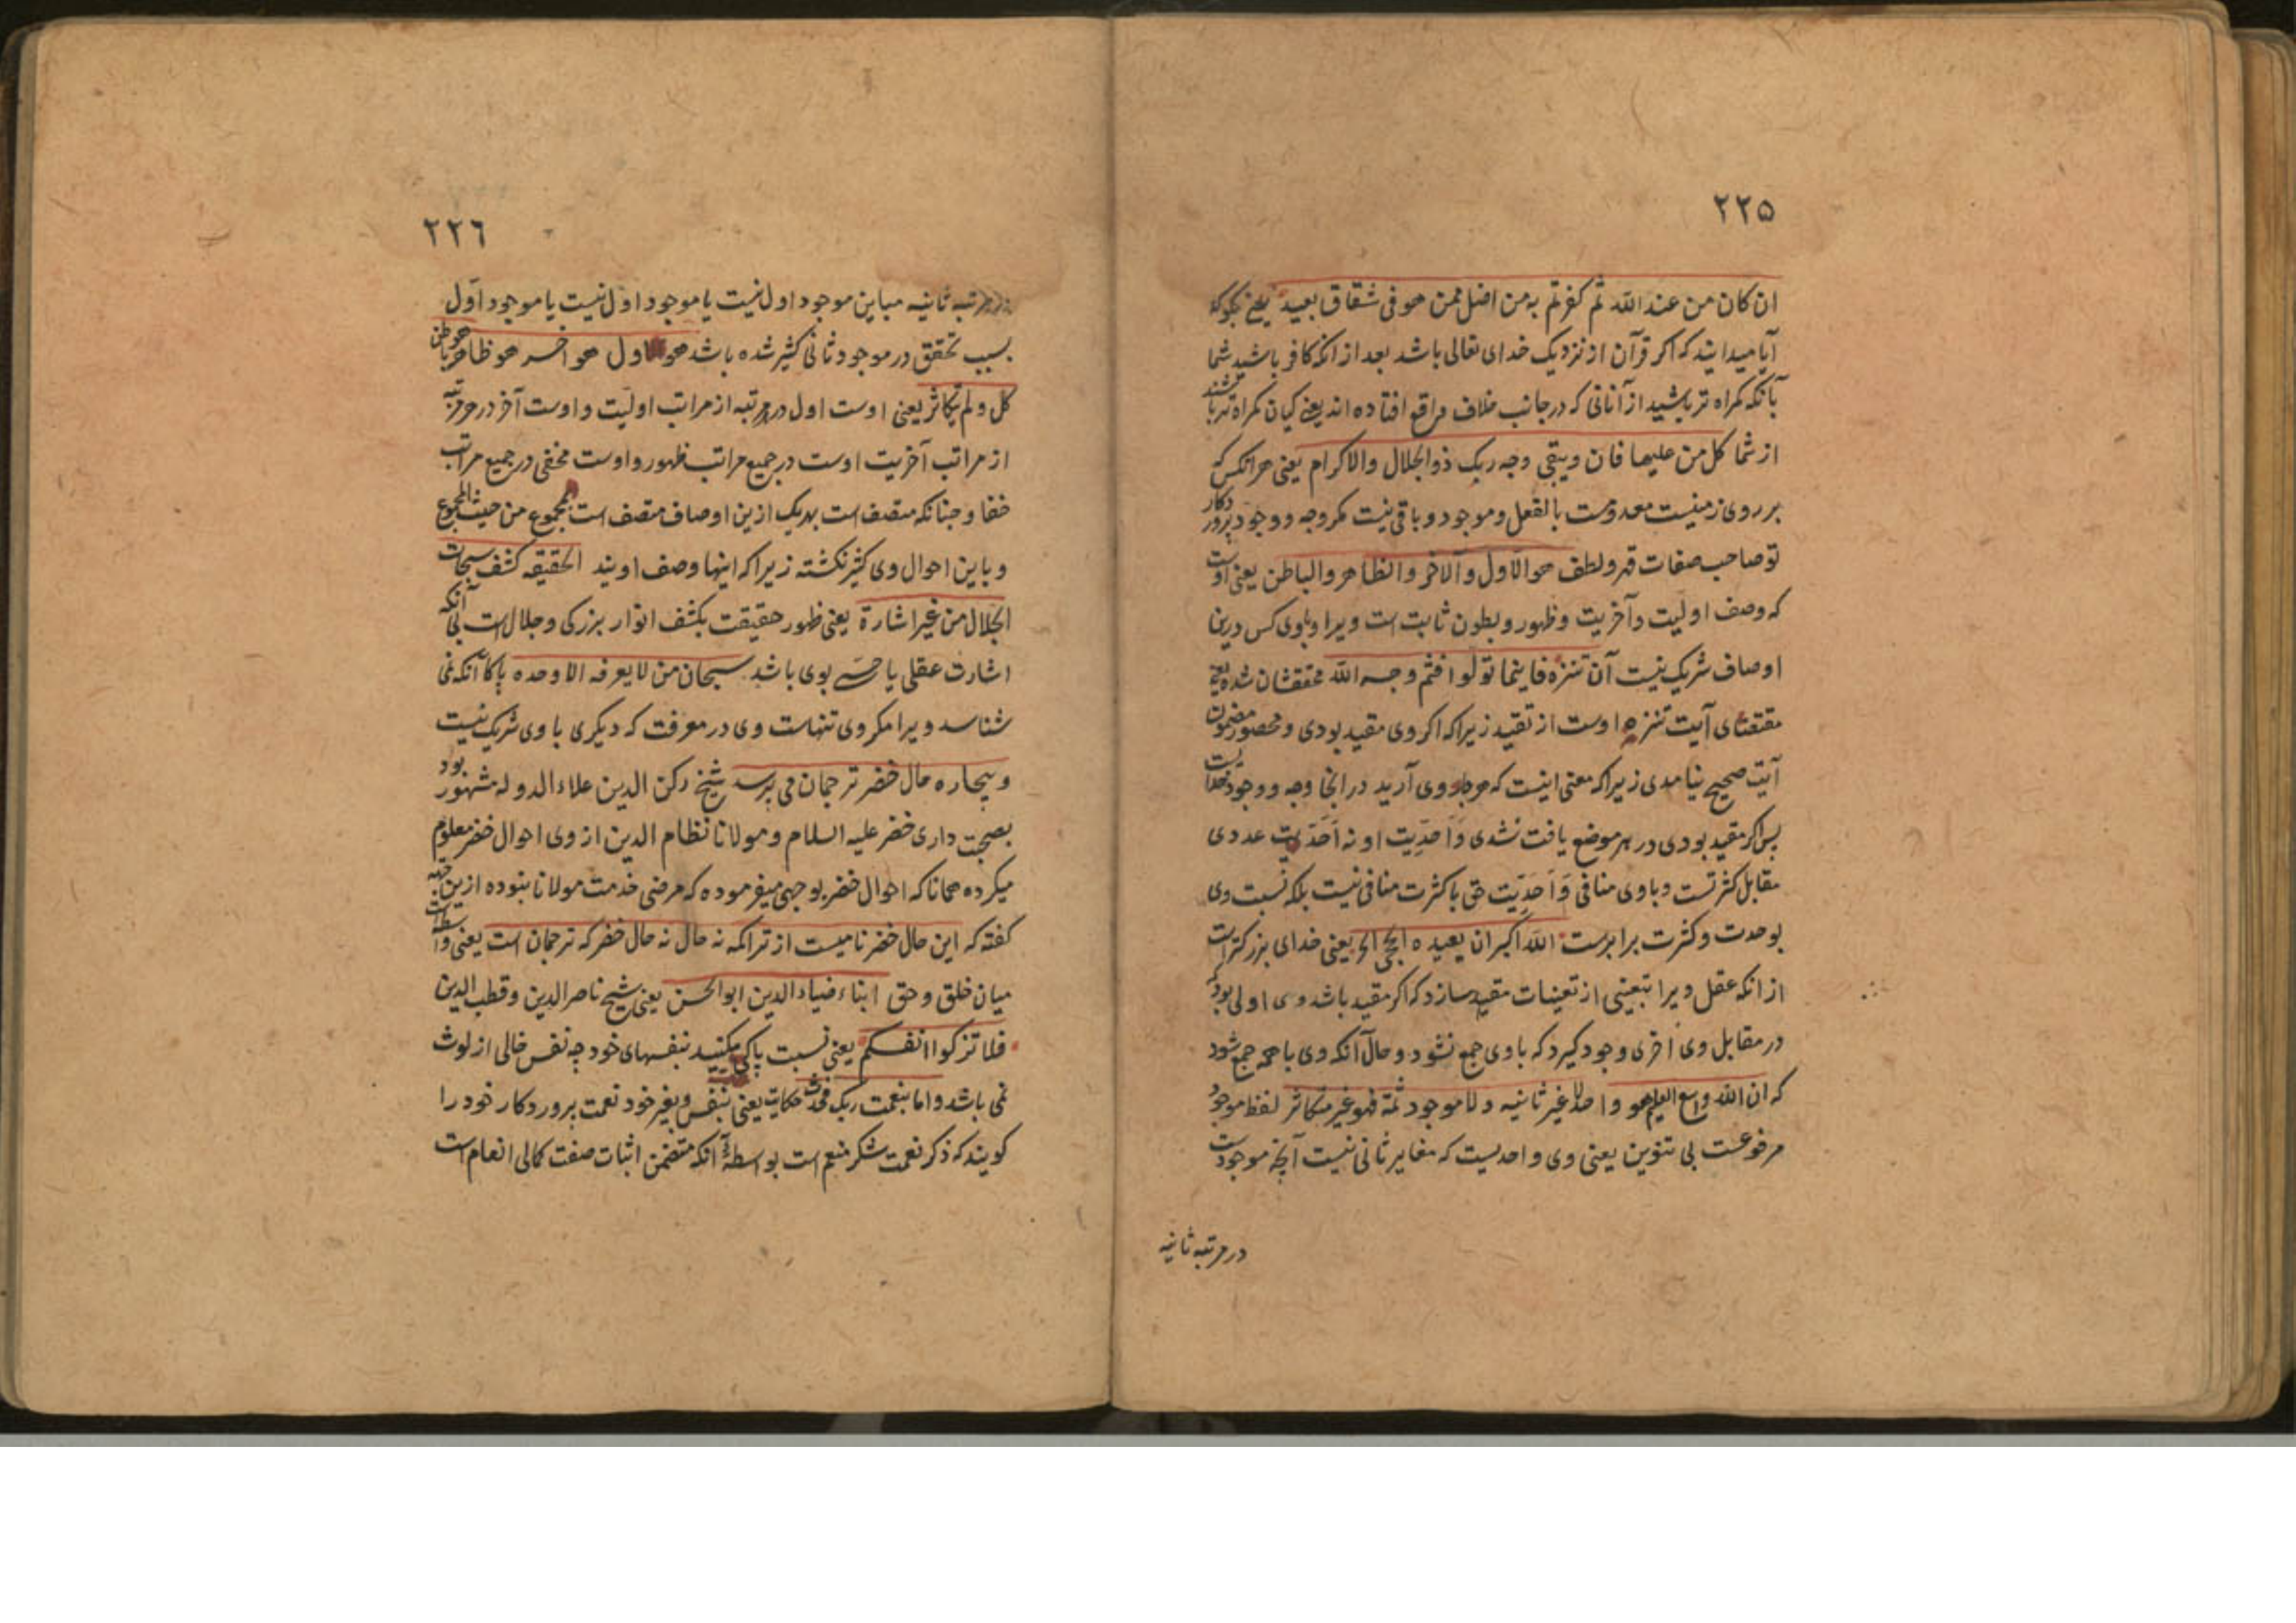 ۲۲۵
ان كان من عند الله ثم كفرتم به من اضل ممن هو فى شقاق بعيد يعنى بگو كه
آيا ميدانيد كه اكر قرآن از نزديك خداى تعالى باشد بعد از انكه كافر باشيد شما
بآنكه كمراه تر باشيد از آنانى كه در جانب خلاف واقع افتاده اند يعنى كيان كمراه تر باشند
از شما كل من عليها فان ويبقى وجه ربك ذو الجلال والاكرام يعنى هر انكس كه
بر روى زمينست معدومست بالفعل وموجود وباقى نيست مكر وجه ووجود پروردكار
تو صاحب صفات قهر ولطف هو الاول والآخر والظاهر والباطن يعنى اوست
كه وصف اوليت وآخريت وظهور وبطون ثابت است ويرا وباوى كس درين
اوصاف شريك نيست آن تنزه فاينما تولوا فثم وجه الله محققشان شده يعنى
مقتضاى آيت تنزه اوست از تقيد زيراكه اكر وى مقيد بودى ومحصور مضمون
آيت صحيح نيامدى زيراكه معنى اينست كه هر جا روى آريد در انجا وجه ووجود خداست
پس اكر مقيد بودى در هر موضع يافت نشدى وَاَحَدِيت او نه اَحَدِيت عددى
مقابل كثرتست وباوى منافى وَاَحَدِيّت حق با كثرت منافى نيست بلكه نسبت وى
بوحدت وكثرت برابرست الله اكبر ان يعيده الحجى الخ يعنى خداى بزركترست
از انكه عقل ويرا بتعينى از تعينات مقيد سازد كه اكر مقيد باشد وى اولى بود كه
در مقابل وى اخرى وجود كيرد كه باوى جمع نشود وحال آنكه وى با همه جمع شود
كه ان الله واسع العليم هو واحد لا غير ثانيه ولا موجود ثمة فهو غير متكاثر لفظ موجود
مرفوعست بى تنوين يعنى وى واحديست كه مغاير ثانى نيست آنچه موجودست
در مرتبه ثانيه
۲۲٦
مرتبه ثانيه مباين موجود اول نيست يا موجود اول نيست يا موجود اول
بسبب تحقق در موجود ثانى كثير شده باشد هو الاول هو اخر هو ظاهر هو باطن
كل ولم يتكاثر يعنى اوست اول در هر مرتبه از مراتب اوليت واوست آخر در هر مرتبه
از مراتب آخريت اوست در جميع مراتب ظهور واوست مخفى در جميع مراتب
خفا وچنانكه متصف است بهر يك ازين اوصاف متصف است بمجموع من حيث المجموع
وباين احوال وى كثير نكشته زيراكه اينها وصف اويند الحقيقه كشف سبحات
الجلال من غير اشارة يعنى ظهور حقيقت بكشف انوار بزركى وجلال است بى آنكه
اشارت عقلى يا حسى بوى باشد سبحان من لا يعرفه الا وحده پاكا آنكه نمى
شناسد ويرا مكر وى تنهاست وى در معرفت كه ديكرى باوى شريك نيست
وبيچاره حال خضر ترجمان مى پرسد شيخ ركن الدين علاء الدوله مشهور بود
بصحبت دارى خضر عليه السلام ومولانا نظام الدين از وى احوال خضر معلوم
ميكرده همانا كه احوال خضر بوجهى ميفرموده كه مرضى خدمت مولانا نبوده ازين جهه
كفته كه اين حال خضر ناميست از تراكمه نه حال نه حال خضر كه ترجمان است يعنى واسطه است
ميان خلق وحق ابناء ضياء الدين ابو الحسن يعنى شيخ ناصر الدين وقطب الدين
فلا تزكوا انفسكم يعنى نسبت پاكى مكنيد بنفسهاى خود چه نفس خالى از لوث
نمى باشد واما بنعمت ربك فحدث حكايت يعنى بنفس وبغير خود نعمت پروردكار خود را
كويند كه ذكر نعمت شكر منعم است بواسطهٔ آنكه متضمن اثبات صفت كمالى انعام است